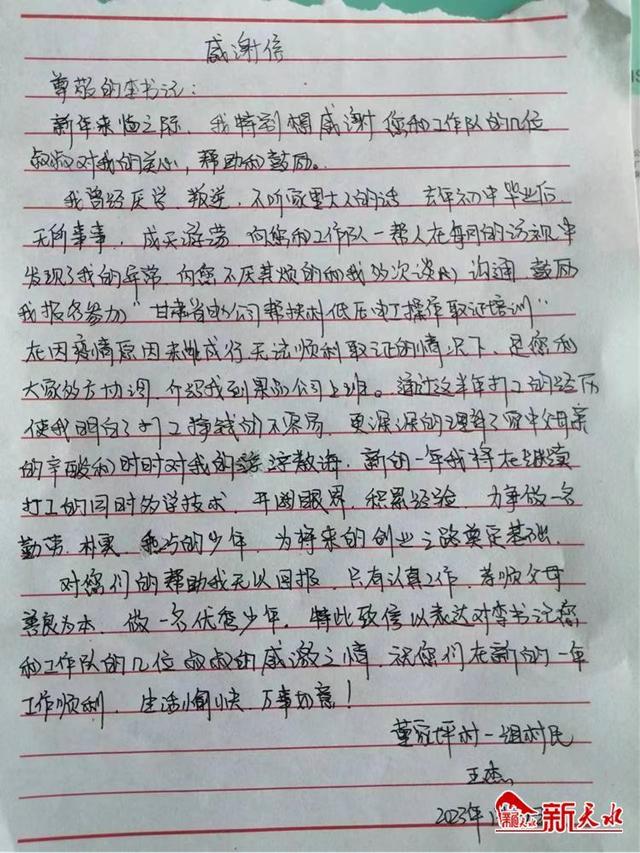 感谢信
尊敬的李书记：
新年来临之际，我特别想感谢您和工作队的几位
叔叔对我的关心，帮助和鼓励。
我曾经厌学，叛逆，不听家里大人的话，去年初中毕业后
无所事事，成天游荡，向您和工作队一帮人在每月的访视中
发现了我的异常，向您不厌其烦的和我多次谈心，沟通，鼓励
我报名参加“甘肃省电公司帮扶村低压电工操作取证培训”
在因疫情原因未能成行无法顺利取证的情况下，是您和
大家多方协调，介绍我到果品公司上班。通过这半年打工的经历
使我明白了打工挣钱的不容易，更深深的理解了家中父母亲
的辛酸和时时对我的谆谆教诲，新的一年我将在继续
打工的同时多学技术，开阔眼界，积累经验，力争做一名
勤劳，朴实，的少年，为将来的创业之路奠定基础。
对您们的帮助我无以回报，只有认真工作，孝顺父母
善良为本，做一名优秀少年，特此致信以表达对李书记您
和工作队的几位叔叔的感激之情，祝您们在新的一年
工作顺利，生活愉快，万事如意！
坪村一组村民
王杰
2023年1
新天水